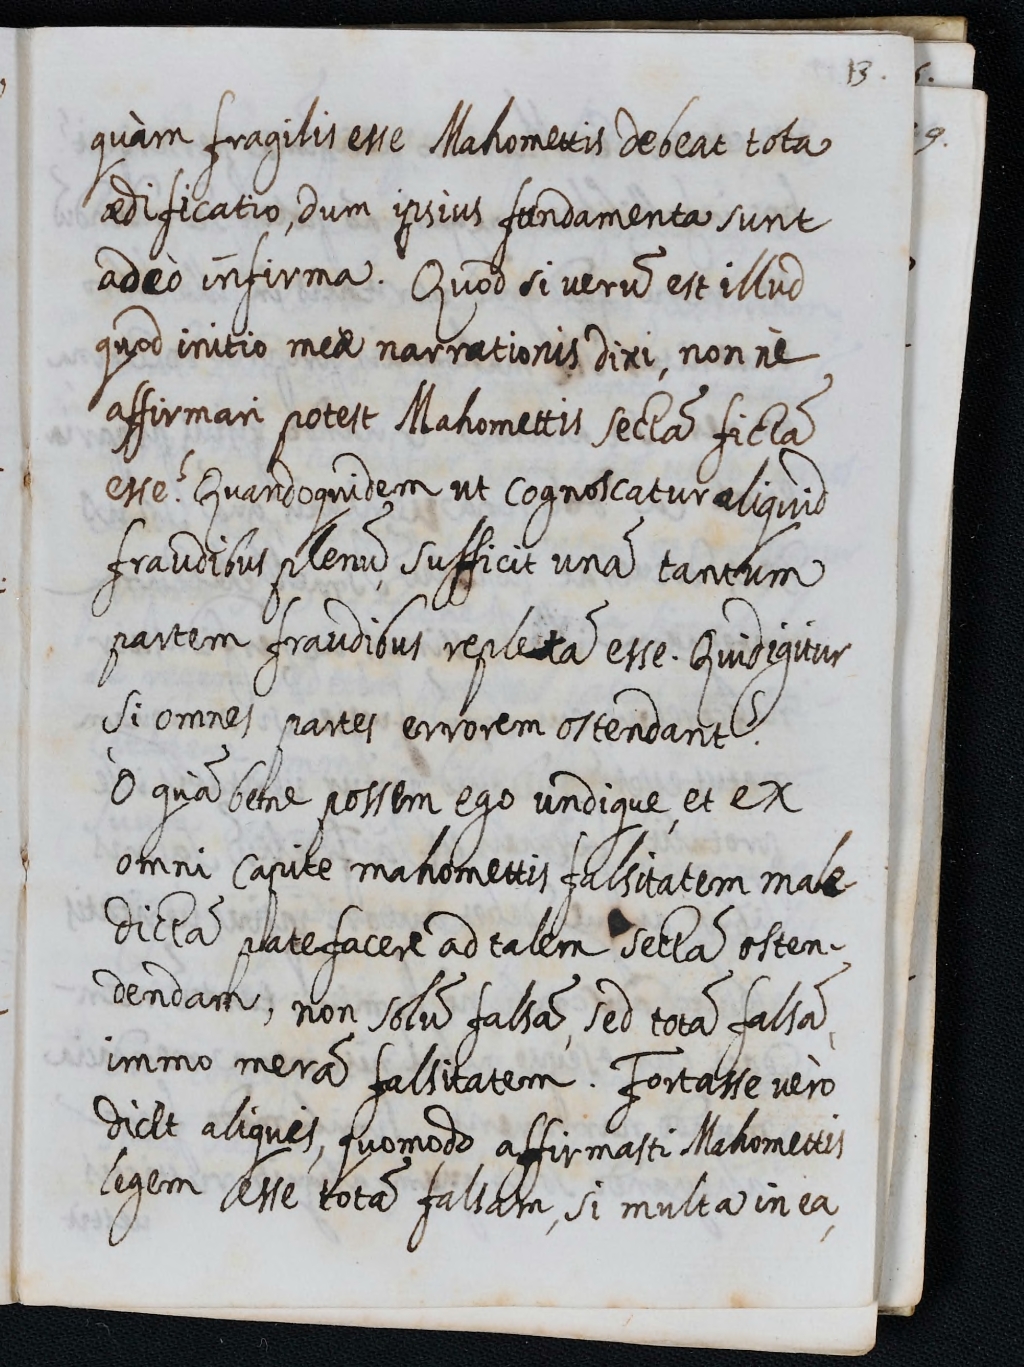 13.
quàm fragilis esse Mahomettis debeat tota
ædificatio, dum ipsius fundamenta sunt
adeò infirma. Quod si verũ est illud
quod initio meæ narrationis dixi, non nè
affirmari potest Mahomettis sectã fictã
esse? Quandoquidem ut cognoscatur aliquid
fraudibus plenũ, sufficit unã tantum
partem fraudibus repletã esse. Quid igitur
si omnes partes errorem ostendant?
O quã bene possem ego undique, et ex
omni capite mahomettis falsitatem male
dictã patefacere ad talem sectã osten-
dendam, non solũ falsã, sed totã falsã,
immo merã falsitatem. Fortasse verò
dicet aliquis, quomodo affirmasti Mahomettis
legem esse totã falsam, si multa in ea,
9.